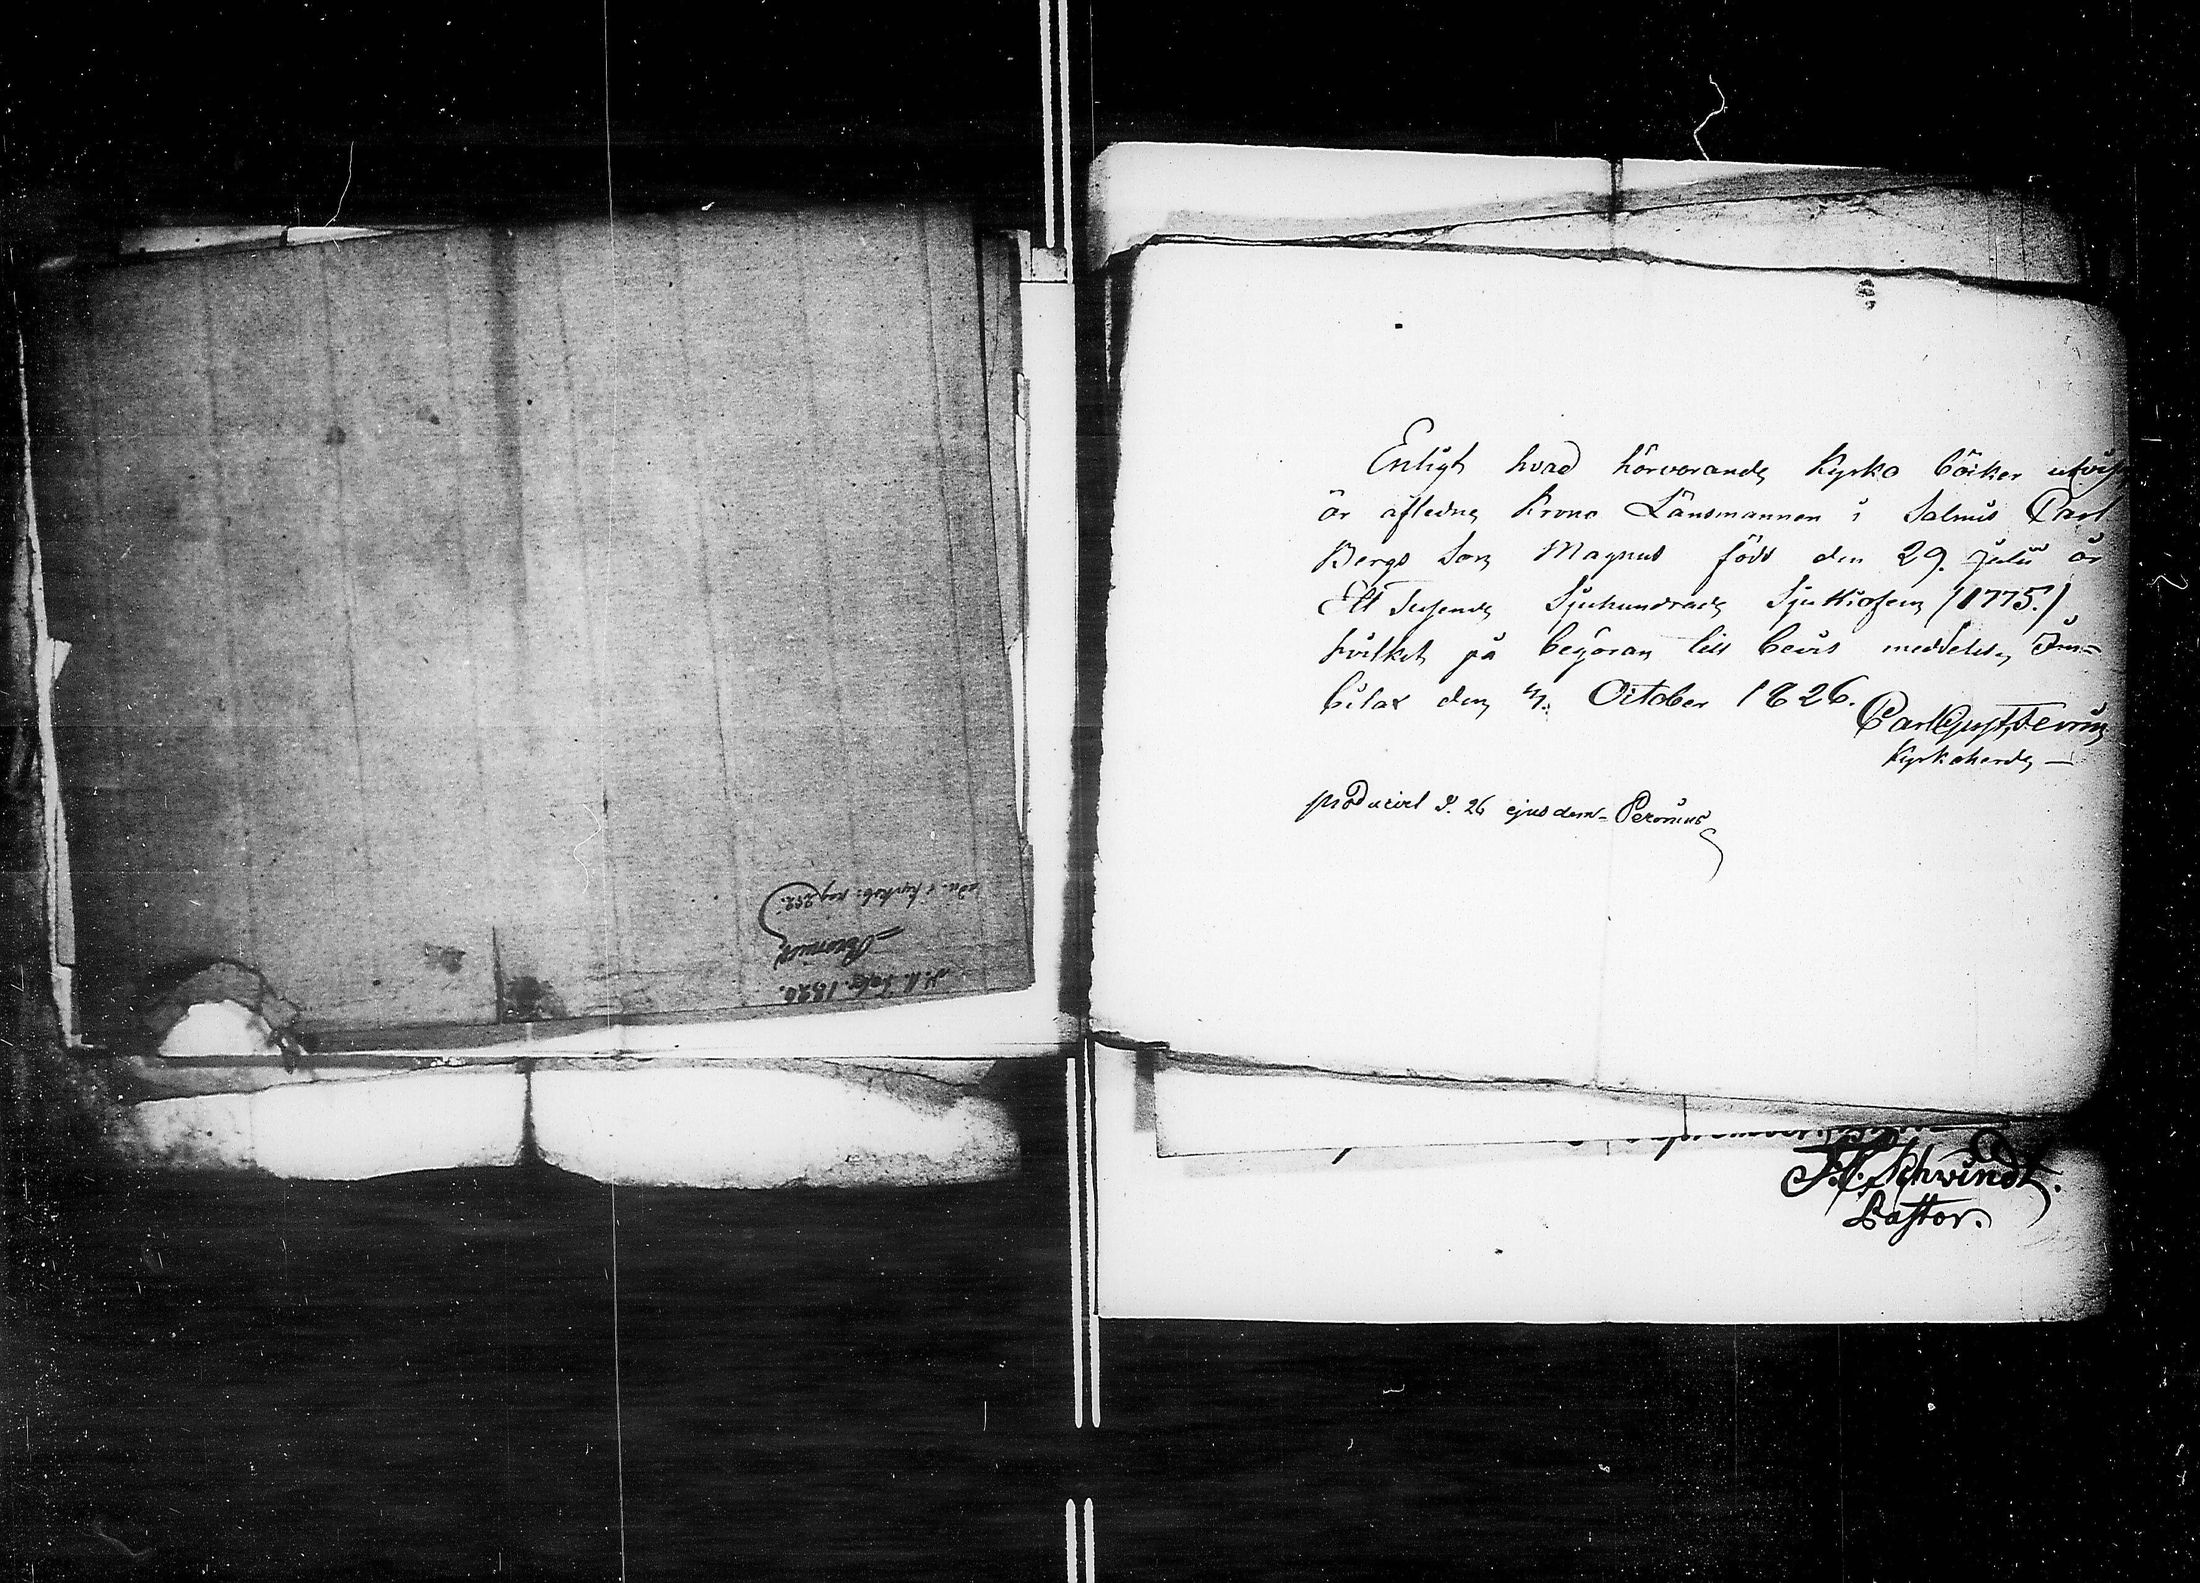 Enligt hvad härvarande Kyrko böcker utvisa
är aflednе Krono Länsmannen i Salmis Carl
Bergs Son Magnus född den 29. Julii år
Ett Tusende Sjuhundrade Sjuttiofem (1775.)
hvilket på begäran till bevis meddelas, Im=
bilax den 4. October 1826.
Carl Gust.
Kyrkoherde
producirt d. 26 ejusdem - Peronius
Schwindt.
Pastor.
1826.
Peronius
kyrkob. pag 252.